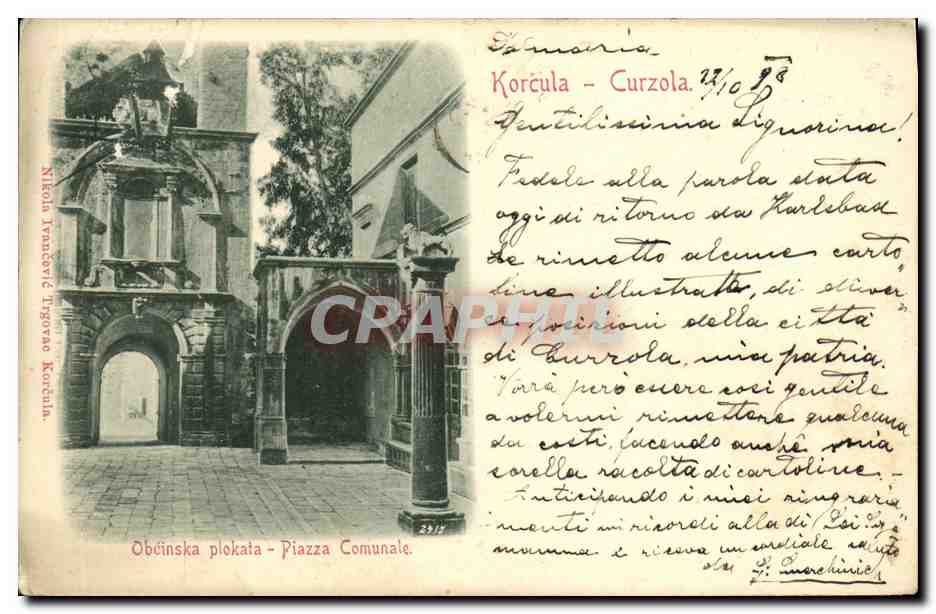 Dalmazia
Korčula - Curzola. 22/10 98
Gentilissima Signorina!
Fedele alla parola data
oggi di ritorno da Karlsbad
Le rimetto alcune carto
line illustrate, di diver
se posizioni della città
di Curzola, mia patria.
Vorrà però essere così gentile
a volermi rimettere qualcuna
da costì, facendo anche mia
sorella raccolta di cartoline. -
Anticipando i miei ringrazia
menti mi ricordi alla di Lei Sig.a
mamma e riceva un cordiale saluto
da G. Smerchinich
Nikola Ivančević Trgovac Korčula.
CRAPHT
2417
Obćinska plokata - Piazza Comunale.